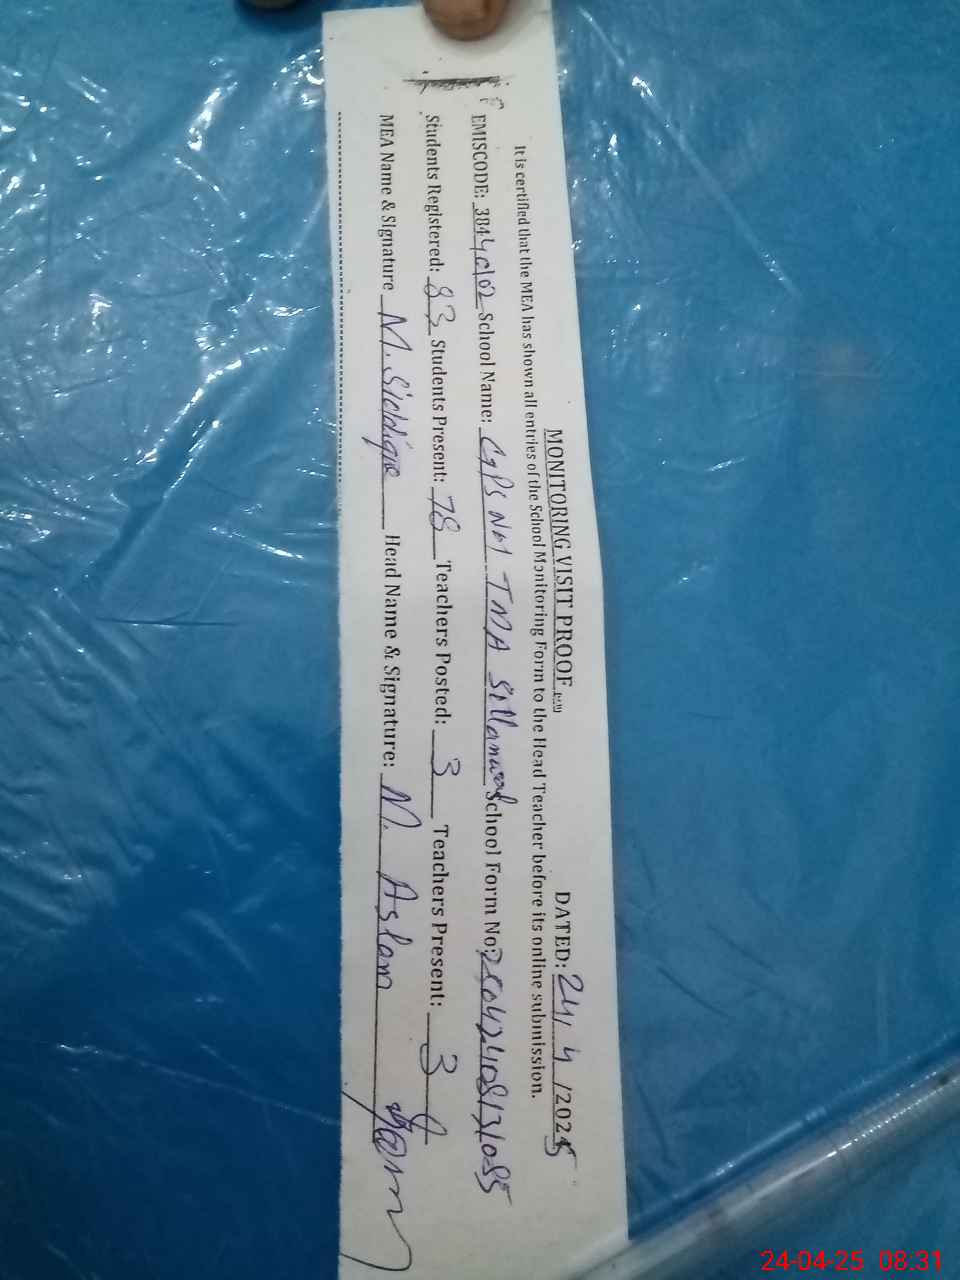 MONITORING VISIT PROOF DATED: 24, 4 /2025
It is certified that the MEA has shown all entries of the School Monitoring Form to the Head Teacher before its online submission.
EMISCODE: 384 School Name: GPS TMA School Form No:
Students Registered: 83 Students Present: 78 Teachers Posted: 3 Teachers Present: 3
MEA Name & Signature M. Siddique Head Name & Signature: M. Aslam
24-04-25 08:31